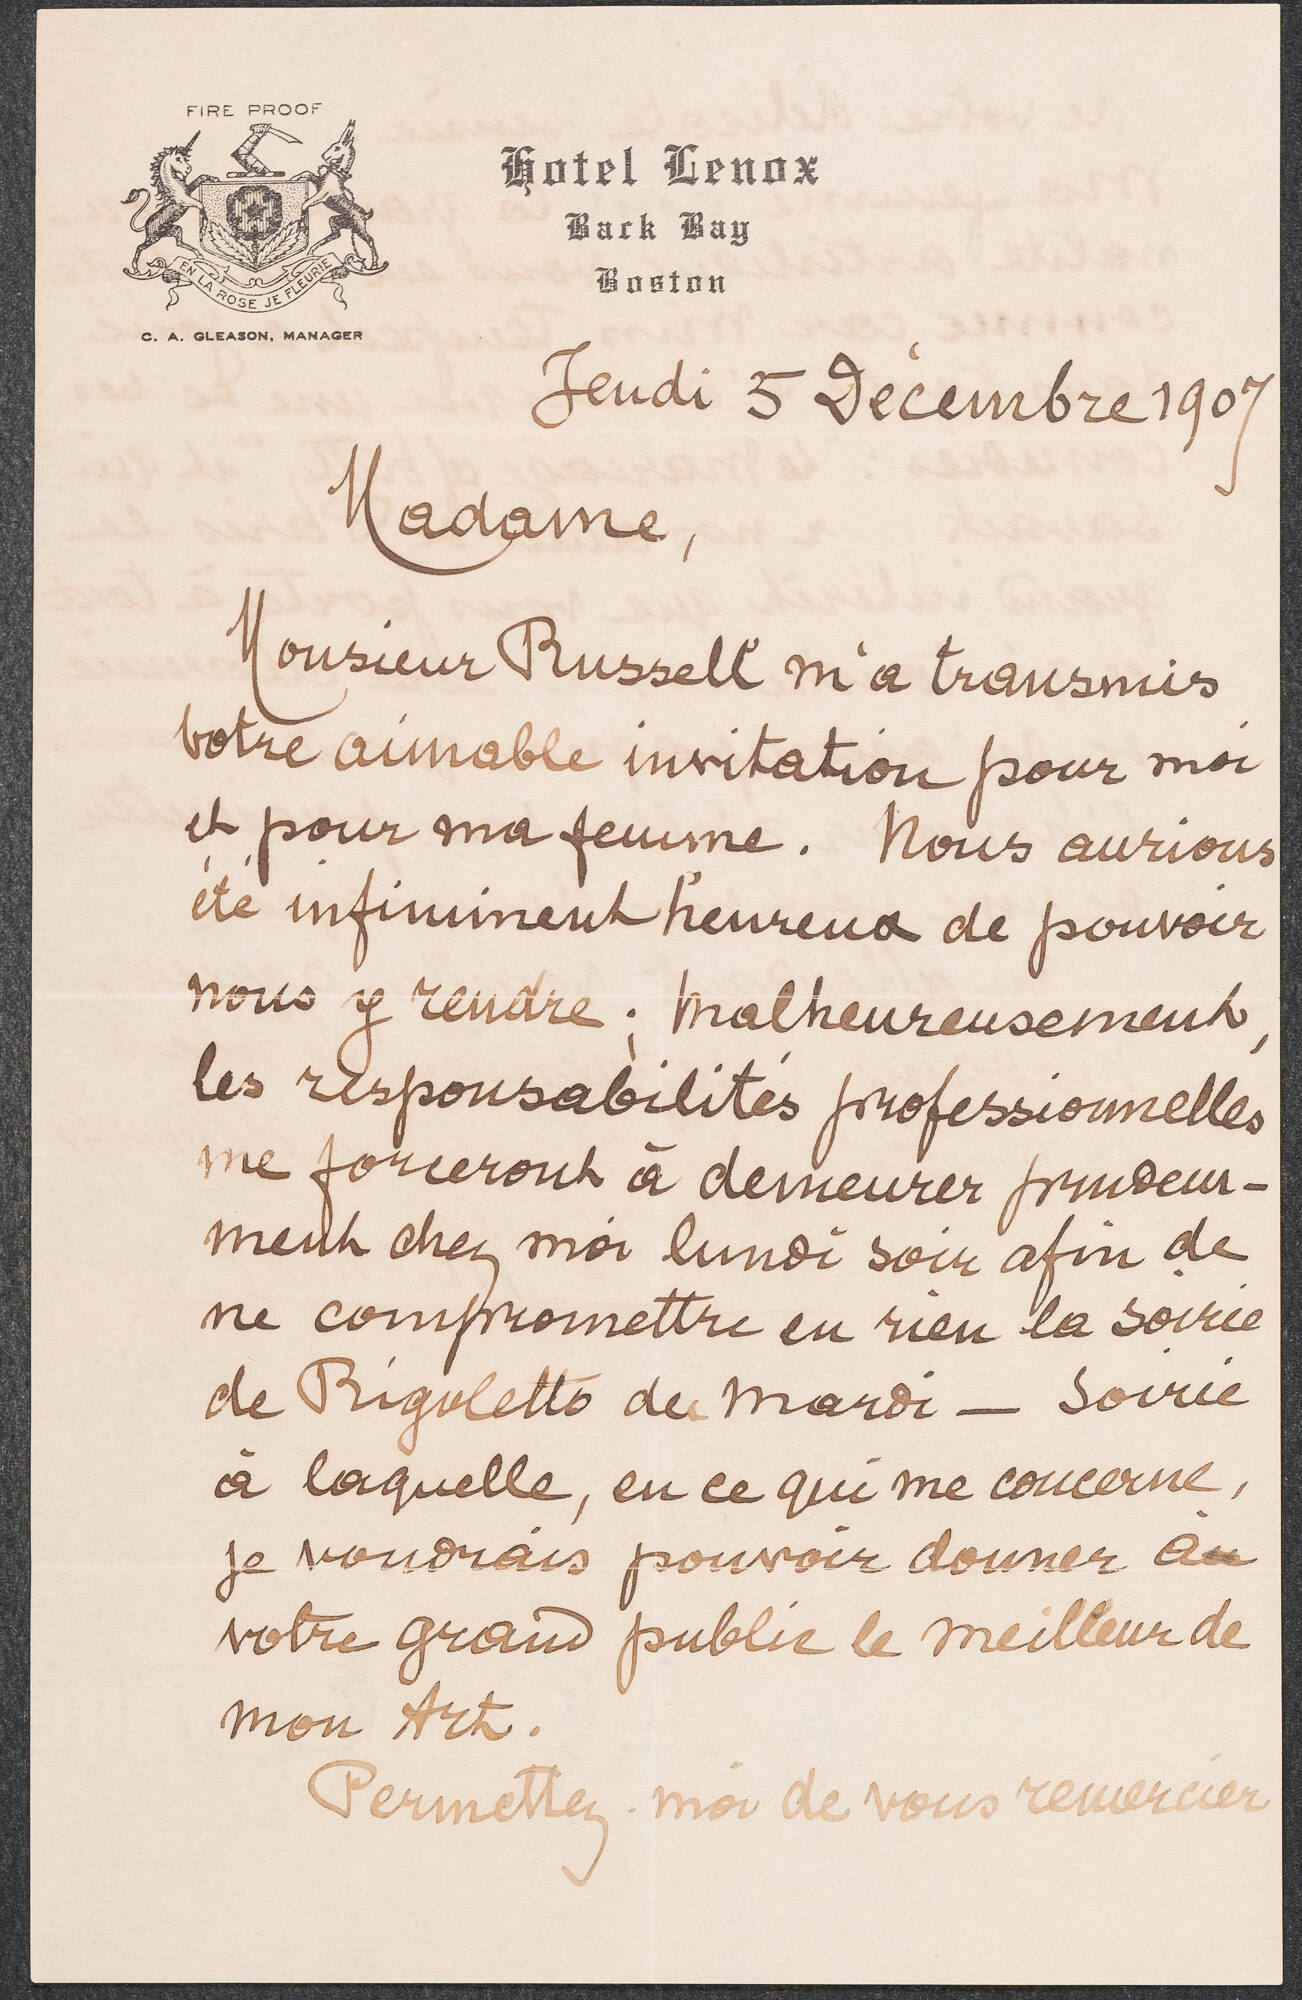 FIRE PROOF
EN LA ROSE JE FLEURIE
C. A. GLEASON, MANAGER
Hotel Lenox
Back Bay
Boston
Jeudi 5 Décembre 1907
Madame,
Monsieur Russell m'a transmis
votre aimable invitation pour moi
et pour ma femme. Nous aurions
été infiniment heureux de pouvoir
nous y rendre ; malheureusement,
les responsabilités professionnelles
me forceront à demeurer prudem-
ment chez moi lundi soir afin de
ne compromettre en rien la soirée
de Rigoletto du Mardi — soirée
à laquelle, en ce qui me concerne,
je voudrais pouvoir donner à
votre grand public le meilleur de
mon Art.
Permettez-moi de vous remercier